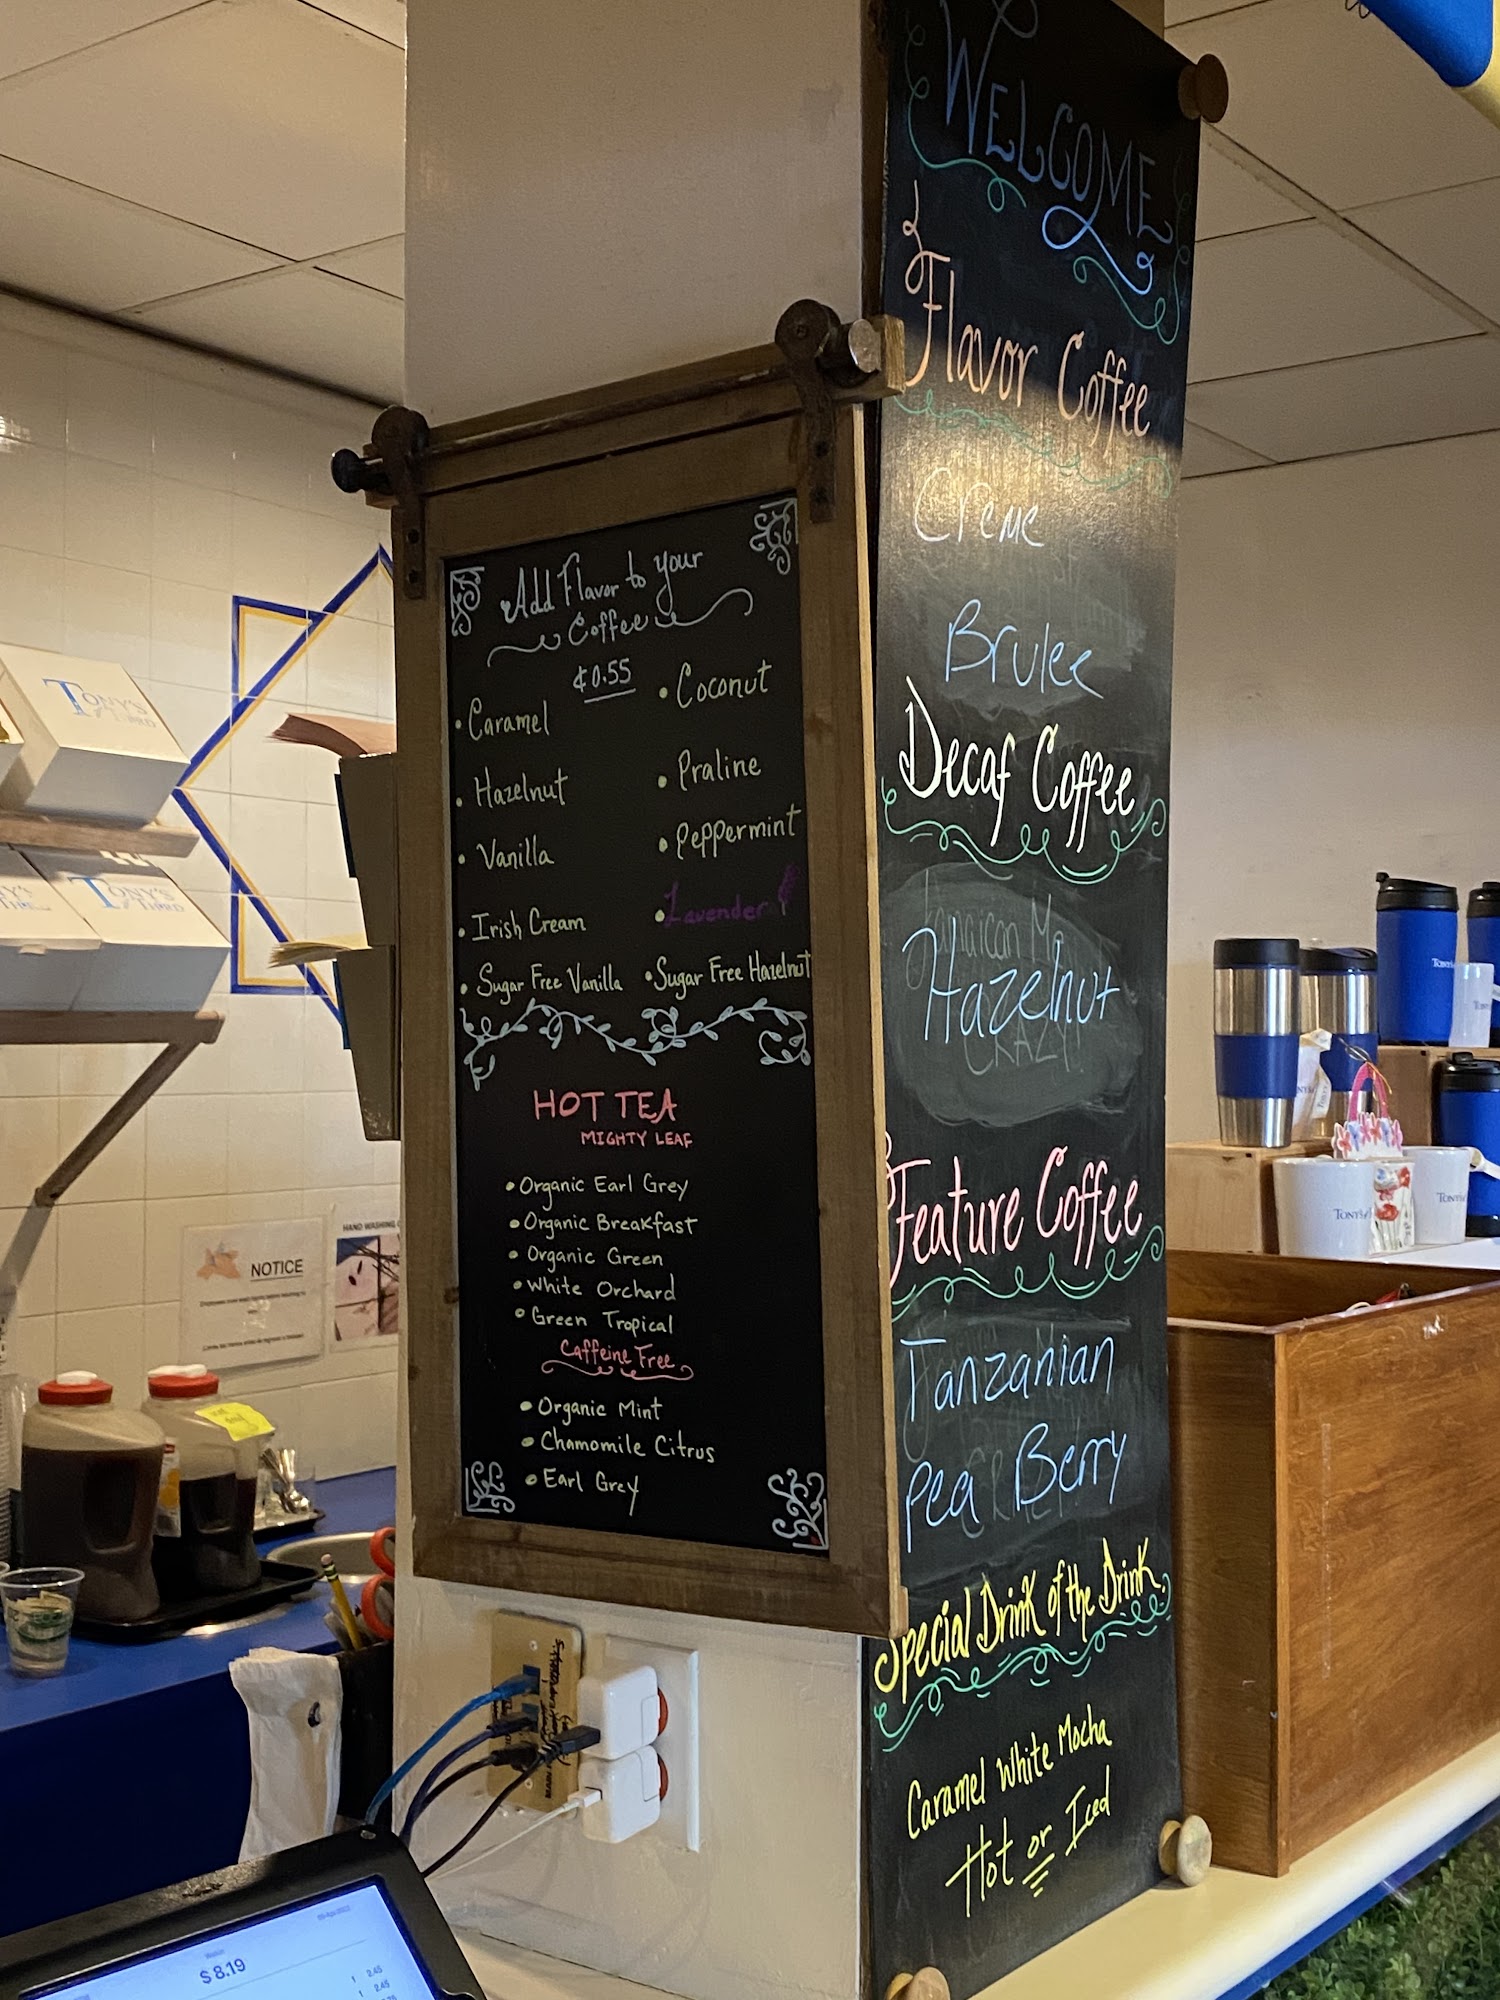 WELCOME
Flavor Coffee
Creme
Brulee
Decaf Coffee
Hazelnut
Feature Coffee
Tanzanian
Pea Berry
Special Drink of the Drink
Caramel White Mocha
Hot or Iced
Add Flavor to your
Coffee
¢0.55
• Caramel
• Hazelnut
• Vanilla
• Irish Cream
• Sugar Free Vanilla
• Coconut
• Praline
• Peppermint
• Lavender
• Sugar Free Hazelnut
HOT TEA
MIGHTY LEAF
• Organic Earl Grey
• Organic Breakfast
• Organic Green
• White Orchard
• Green Tropical
Caffeine Free
• Organic Mint
• Chamomile Citrus
• Earl Grey
TONY'S
THIRD
TONY'S
THIRD
NOTICE
HAND WASHING
TONY'S
TONY'S
$8.19
1 2.45
1 2.45